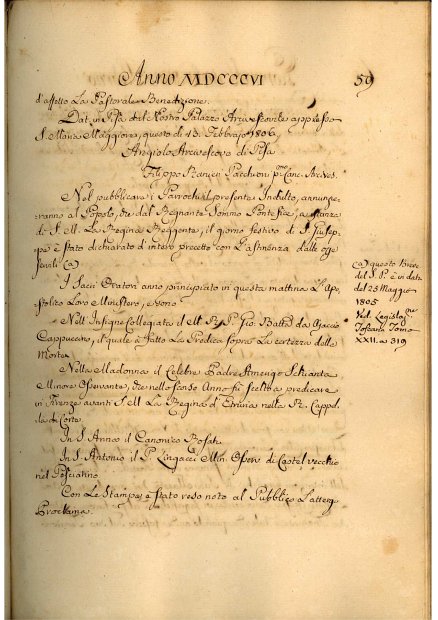 Anno MDCCCVI
59
d'affetto La Pastorale Benedizione.
Dat. in Pisa dal Nostro Palazzo Arcivescovile appresso
S. Maria Maggiore, questo dì 13. Febbrajo 1806.
Angiolo Arcivescovo di Pisa
Filippo Ranieri Pacchiani Canc. Arcives.
Nel pubblicare i Parrochi il presente Indulto, annunze-
ranno al Popolo, che dal Regnante Sommo Pontefice, a istanza
di S. M. La Regina Reggente, il giorno festivo di S. Giusep-
pe è stato dichiarato di intero precetto con L'astinenza dalle ope
servili (a)
I Sacri Oratori anno principiato in questa mattina L'Apo-
stolico Loro Ministero, e sono
Nell'Insigne Collegiata il M. R. P. Gio. Batta da Ajaccio
Cappuccino, il quale à fatto La Predica sopra La certezza della
Morte.
Nella Madonna il Celebre Padre
Minore Osservante, che nello scorso Anno fù scelto a predicare
in Firenze avanti S. M. La Regina d'Etruria nella R. Cappel-
la di Corte.
In S. Anna il Canonico Rosati.
In S. Antonio il P. Lingacci Min. Osserv. di Castel vecchio
nel Pesciatino.
Con Le Stampe è stato reso noto al Pubblico L'atteg.
Proclama.
(a) questo Breve
del S. P. è in data
del 25 Maggio
1805
Ved. Legislaz.ne
Toscana Tomo
XXII. a 319